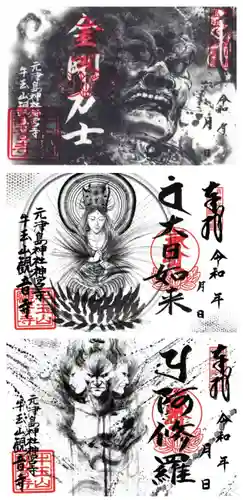 奉拝
令和 年
月 日
金剛力士
元津島神社神宮寺
牛玉山観音寺
奉拝
令和 年
月 日
大日如来
元津島神社神宮寺
牛玉山観音寺
奉拝
令和 年
月 日
阿修羅
元津島神社神宮寺
牛玉山観音寺